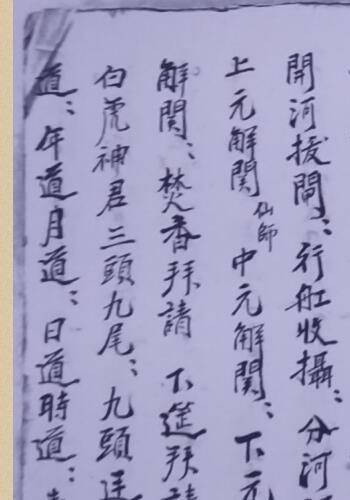 開河拔閘：行舡收攝：分河
上元解関仙師中元解関：下元
解関：焚香拜請下筵拜請
白虎神君三頭九尾：九頭
道：年道月道：日道時道：